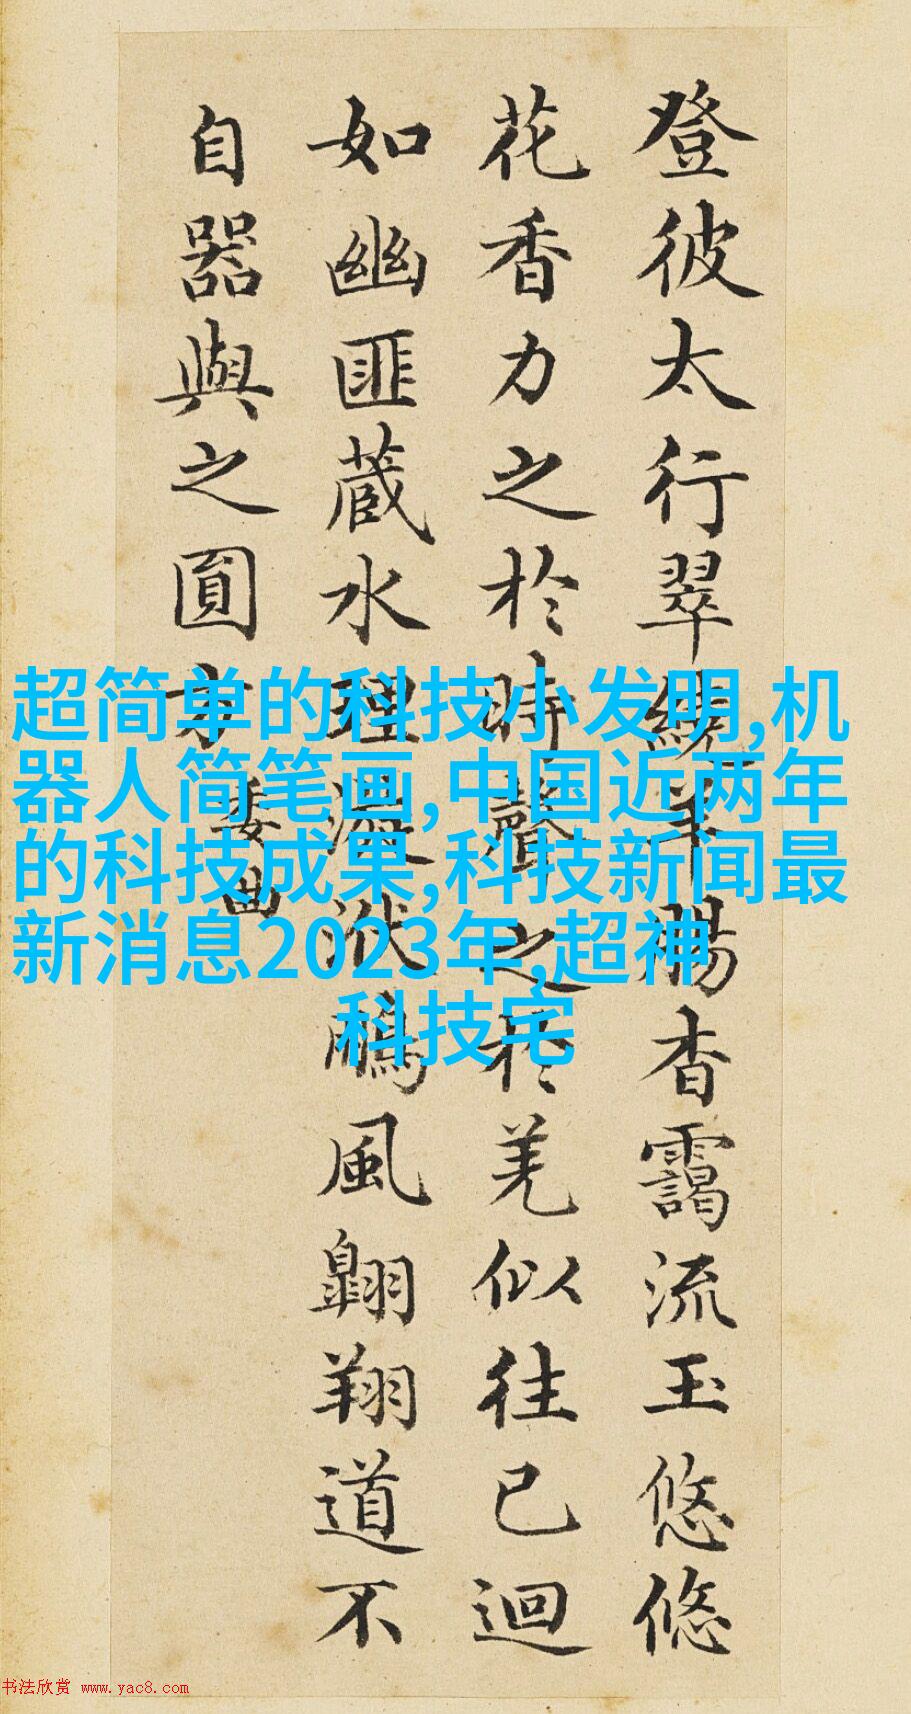 登彼太行翠繞羊腸杳靄流玉悠悠
花香力之於時聲之於羌似往已迴
如幽匪藏水理漩洑鵬風翱翔道不
自器與之圓方
委曲
超简单的科技小发明,机
器人简笔画,中国近两年
的科技成果,科技新闻最
新消息2023年,超神
科技宅
书法欣赏 www.yac8.com